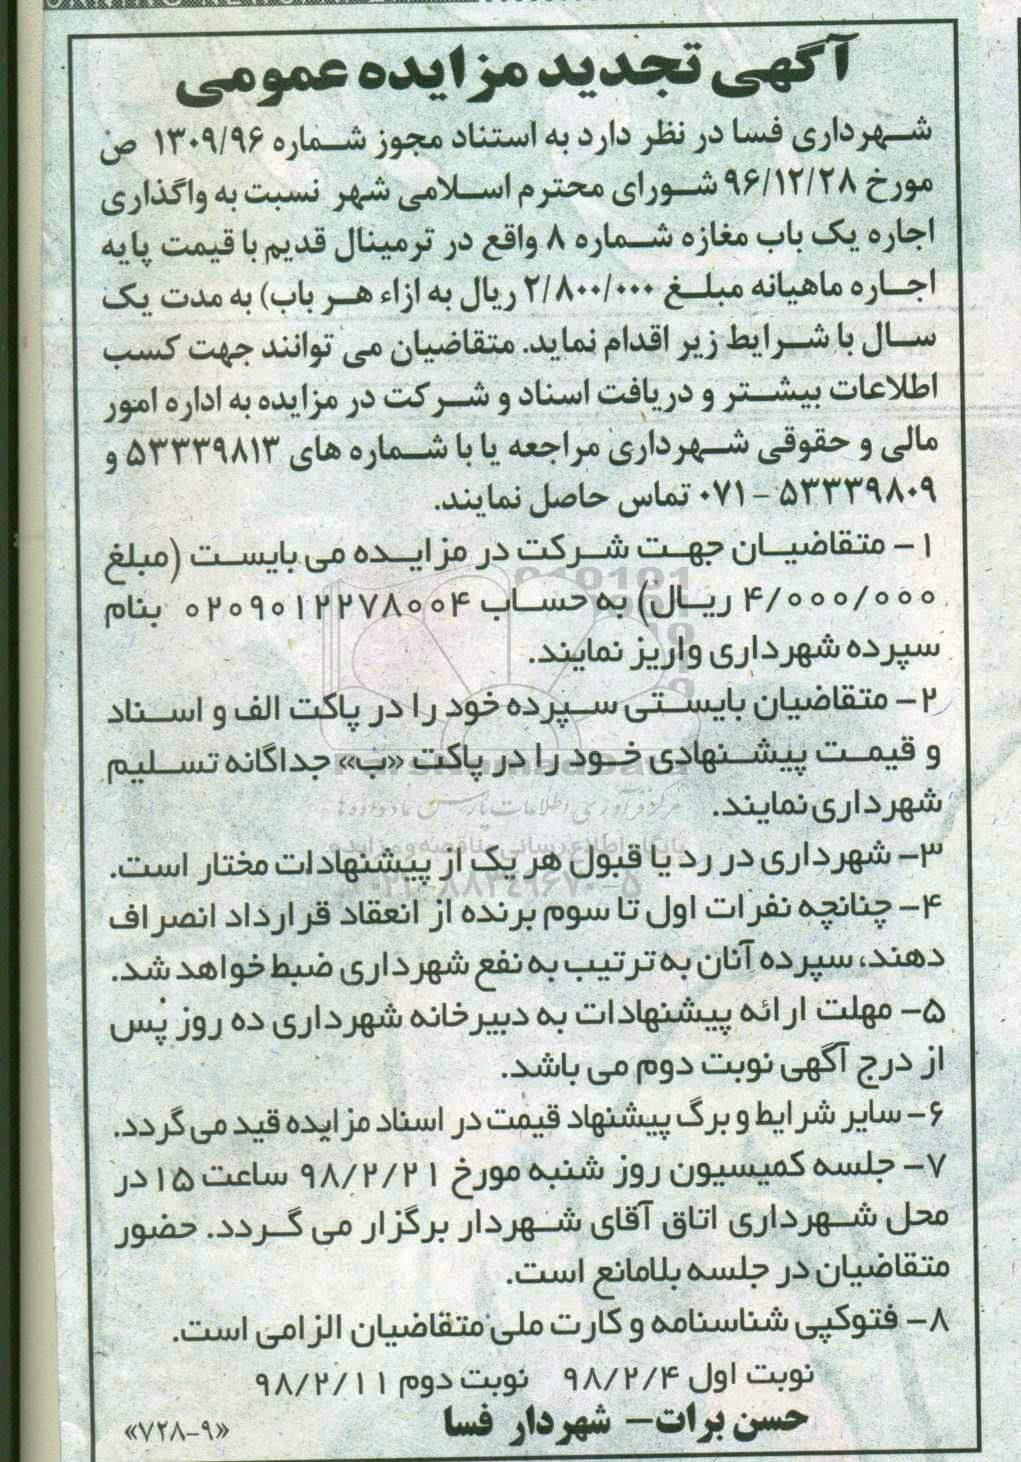 آگهی تجدید مزایده عمومی
شهرداری فسا در نظر دارد به استناد مجوز شماره ۱۳۰۹/۹۶ ص
مورخ ۹۶/۱۲/۲۸ شورای محترم اسلامی شهر نسبت به واگذاری
اجاره یک باب مغازه شماره ۸ واقع در ترمینال قدیم با قیمت پایه
اجاره ماهیانه مبلغ ۲/۸۰۰/۰۰۰ ریال به ازاء هر باب) به مدت یک
سال با شرایط زیر اقدام نماید. متقاضیان می توانند جهت کسب
اطلاعات بیشتر و دریافت اسناد و شرکت در مزایده به اداره امور
مالی و حقوقی شهرداری مراجعه یا با شماره های ۵۳۳۳۹۸۱۳ و
۵۳۳۳۹۸۰۹ - ۰۷۱ تماس حاصل نمایند.
۱- متقاضیان جهت شرکت در مزایده می بایست (مبلغ
۴/۰۰۰/۰۰۰ ریال) به حساب ۰۲۰۹۰۱۲۲۷۸۰۰۴ بنام
سپرده شهرداری واریز نمایند.
۲- متقاضیان بایستی سپرده خود را در پاکت الف و اسناد
و قیمت پیشنهادی خود را در پاکت «ب» جداگانه تسلیم
شهرداری نمایند.
مرکز فرآوری اطلاعات پارس نماد داده ها
پایگاه اطلاع رسانی مناقصه و مزایده
۳- شهرداری در رد یا قبول هر یک از پیشنهادات مختار است.
۰۲۱-۸۸۳۴۹۶۷۰-۵
۴- چنانچه نفرات اول تا سوم برنده از انعقاد قرارداد انصراف
دهند، سپرده آنان به ترتیب به نفع شهرداری ضبط خواهد شد.
۵- مهلت ارائه پیشنهادات به دبیرخانه شهرداری ده روز پس
از درج آگهی نوبت دوم می باشد.
۶- سایر شرایط و برگ پیشنهاد قیمت در اسناد مزایده قید می گردد.
۷- جلسه کمیسیون روز شنبه مورخ ۹۸/۲/۲۱ ساعت ۱۵ در
محل شهرداری اتاق آقای شهردار برگزار می گردد. حضور
متقاضیان در جلسه بلامانع است.
۸- فتوکپی شناسنامه و کارت ملی متقاضیان الزامی است.
نوبت اول ۹۸/۲/۴ نوبت دوم ۹۸/۲/۱۱
حسن برات- شهردار فسا
«۷۲۸-۹»